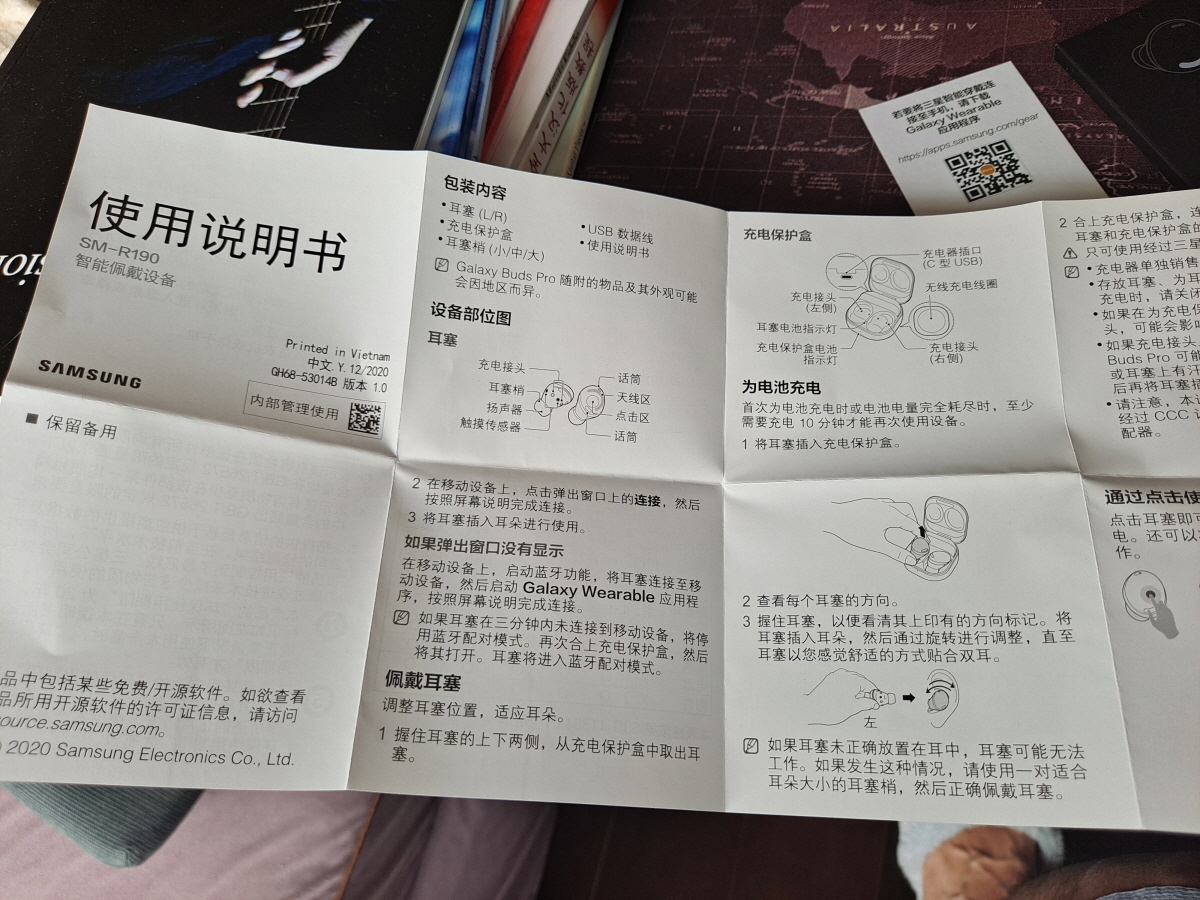 AUSTRALIA
若要将三星智能穿戴连
接至手机，请下载
Galaxy Wearable
应用程序
https://apps.samsung.com/gear
使用说明书
SM-R190
智能佩戴设备
Printed in Vietnam
中文.Y.12/2020
GH68-53014B 版本 1.0
SAMSUNG
内部管理使用
包装内容
•耳塞 (L/R)
•充电保护盒
•耳塞梢 (小/中/大)
•USB 数据线
•使用说明书
Galaxy Buds Pro 随附的物品及其外观可能
会因地区而异。
设备部位图
耳塞
充电接头
耳塞梢
扬声器
触摸传感器
话筒
天线区
点击区
话筒
充电保护盒
充电器插口
(C 型 USB)
无线充电线圈
充电接头
(左侧)
耳塞电池指示灯
充电保护盒电池
指示灯
充电接头
(右侧)
为电池充电
首次为电池充电时或电池电量完全耗尽时，至少
需要充电 10 分钟才能再次使用设备。
1 将耳塞插入充电保护盒。
2 合上充电保护盒，连
耳塞和充电保护盒的
只可使用经过三星
•充电器单独销售
•存放耳塞、为耳
充电时，请关闭
•如果在为充电保
头，可能会影响
•如果充电接头、
Buds Pro 可能
或耳塞上有汗
后再将耳塞
•请注意，本
经过 CCC
配器。
■ 保留备用
品中包括某些免费/开源软件。如欲查看
品所用开源软件的许可证信息，请访问
source.samsung.com。
2020 Samsung Electronics Co., Ltd.
2 在移动设备上，点击弹出窗口上的连接，然后
按照屏幕说明完成连接。
3 将耳塞插入耳朵进行使用。
如果弹出窗口没有显示
在移动设备上，启动蓝牙功能，将耳塞连接至移
动设备，然后启动 Galaxy Wearable 应用程
序，按照屏幕说明完成连接。
如果耳塞在三分钟内未连接到移动设备，将停
用蓝牙配对模式。再次合上充电保护盒，然后
将其打开。耳塞将进入蓝牙配对模式。
佩戴耳塞
调整耳塞位置，适应耳朵。
1 握住耳塞的上下两侧，从充电保护盒中取出耳
塞。
2 查看每个耳塞的方向。
3 握住耳塞，以便看清其上印有的方向标记。将
耳塞插入耳朵，然后通过旋转进行调整，直至
耳塞以您感觉舒适的方式贴合双耳。
左
如果耳塞未正确放置在耳中，耳塞可能无法
工作。如果发生这种情况，请使用一对适合
耳朵大小的耳塞梢，然后正确佩戴耳塞。
通过点击使
点击耳塞即可
电。还可以
作。